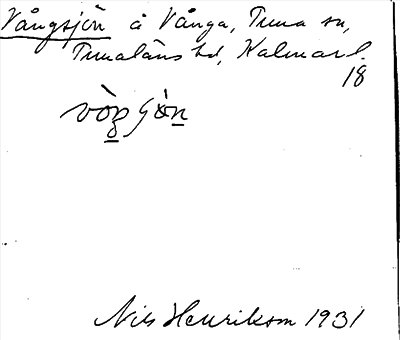 Vångsjön å Vånga, Tuna sn,
Tunaläns hd, Kalmar l.
18
Nils Henrikson 1931